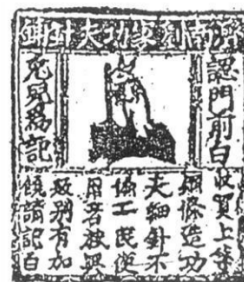 濟南劉家功夫針鋪
認門前白
兔兒為記
收買上等
鋼條造功
夫細針不
偷工民便
用若被興
販別有加
饒請記白